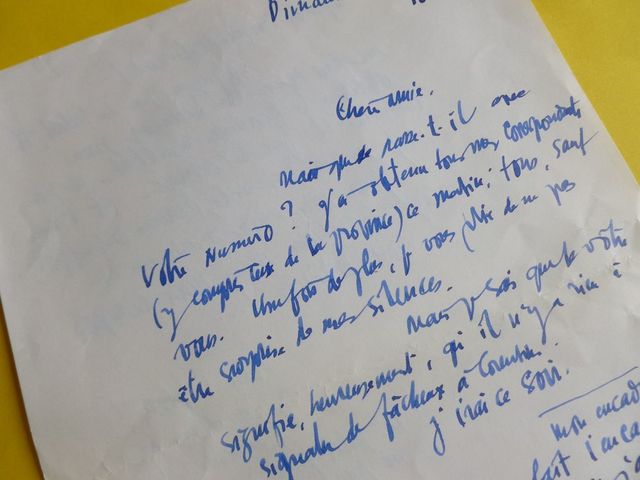 Chère amie,
Mais que se passe-t-il avec
votre numéro ? J'ai obtenu tous mes correspondants
(y compris ceux de la province) ce matin; tous, sauf
vous. Une fois de plus, je vous prie de ne pas
être surprise de mes silences.
Mais je sais que le vôtre
signifie, heureusement, qu'il n'y a rien à
signaler de fâcheux à
j'irai ce soir.
mon
fait